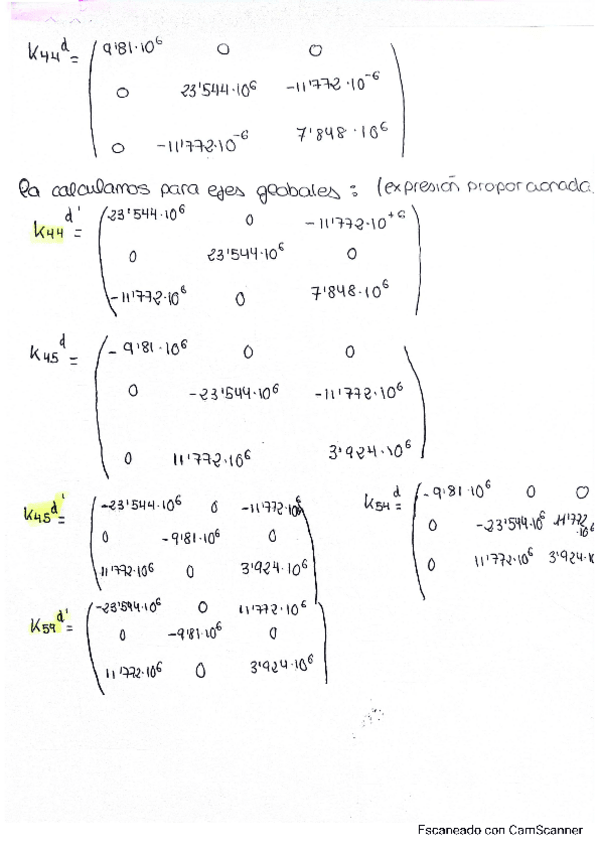 K44^d = ( 9'81·10^6 0 0
0 23'544·10^6 -11'772·10^-6
0 -11'772·10^-6 7'848·10^6 )
la calculamos para ejes globales: (expresión proporcionada.
K44^d' = ( 23'544·10^6 0 -11'772·10^+6
0 23'544·10^6 0
-11'772·10^6 0 7'848·10^6 )
K45^d = ( -9'81·10^6 0 0
0 -23'544·10^6 -11'772·10^6
0 11'772·10^6 3'924·10^6 )
K45^d' = ( -23'544·10^6 0 -11'772·10^6
0 -9'81·10^6 0
11'772·10^6 0 3'924·10^6 )
K54^d = ( -9'81·10^6 0 0
0 -23'544·10^6 11'772·10^6
0 11'772·10^6 3'924·1
K54^d' = ( -23'544·10^6 0 11'772·10^6
0 -9'81·10^6 0
11'772·10^6 0 3'924·10^6 )
Escaneado con CamScanner